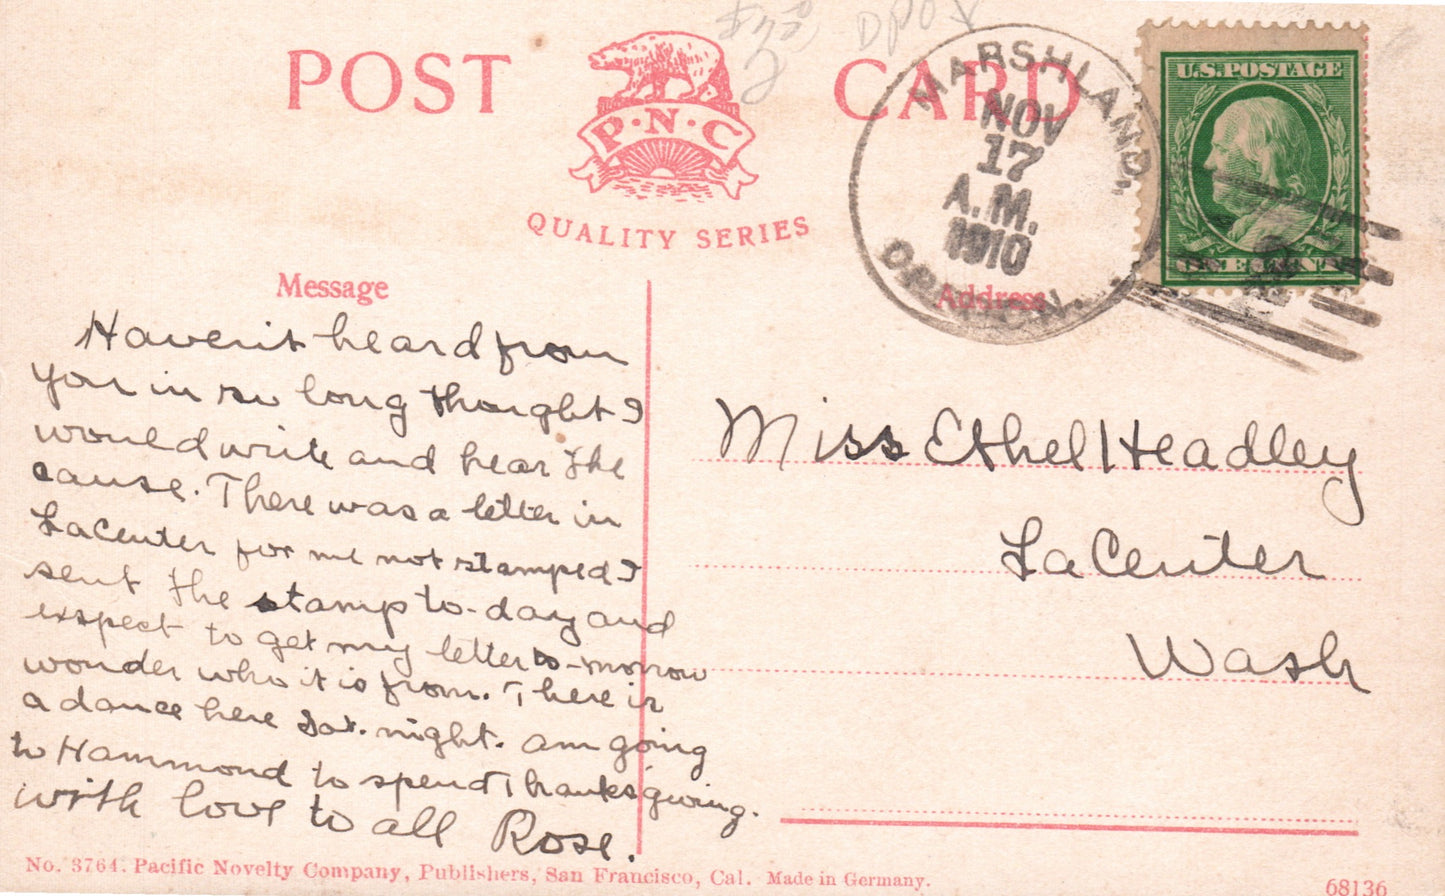 POST CARD
P·N·C
QUALITY SERIES
$72⁰
DPO
MARSHLAND,
NOV
17
A.M.
1910
OREGON.
U.S. POSTAGE
ONE CENT
Message
Address
Haven't heard from
you in so long thought I
would write and hear the
cause. There was a letter in
LaCenter for me not stamped I
sent the stamp to-day and
expect to get my letter to-morrow
wonder who it is from. There is
a dance here Sat. night. am going
to Hammond to spend Thanksgiving.
with love to all Rose.
Miss Ethel Headley
LaCenter
Wash
No. 3764. Pacific Novelty Company, Publishers, San Francisco, Cal. Made in Germany.
68136